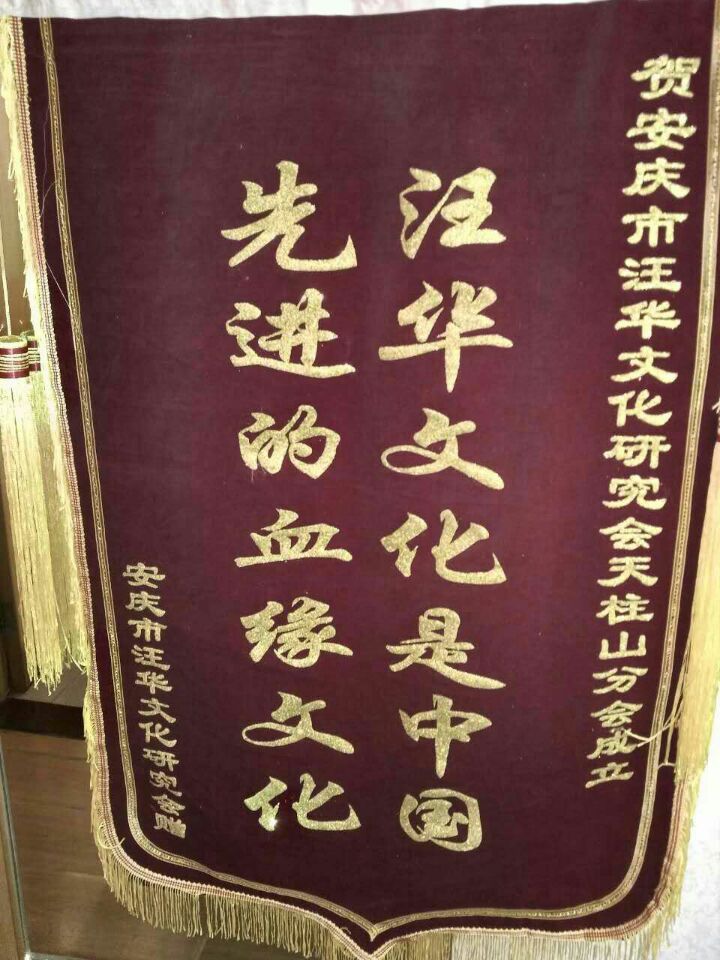 贺安庆市汪华文化研究会天柱山分会成立
汪华文化是中国
先进的血缘文化
安庆市汪华文化研究会赠